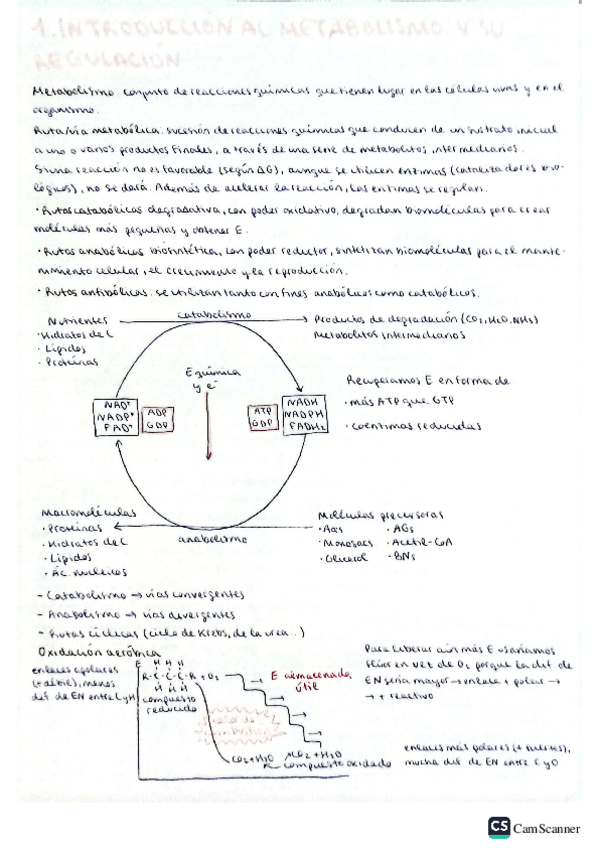 1. INTRODUCCIÓN AL METABOLISMO Y SU
REGULACIÓN
Metabolismo: conjunto de reacciones químicas que tienen lugar en las células vivas y en el
organismo.
Ruta/vía metabólica: sucesión de reacciones químicas que conducen de un sustrato inicial
a uno o varios productos finales, a través de una serie de metabolitos intermediarios.
Si una reacción no es favorable (según ΔG), aunque se utilicen enzimas (catalizadores bio-
lógicos), no se dará. Además de acelerar la reacción, las enzimas se regulan.
· Rutas catabólicas: degradativa, con poder oxidativo, degradan biomoléculas para crear
moléculas más pequeñas y obtener E.
· Rutas anabólicas: biosintética, con poder reductor, sintetizan biomoléculas para el mante-
nimiento celular, el crecimiento y la reproducción.
· Rutas anfibólicas: se utilizan tanto con fines anabólicos como catabólicos.
Nutrientes
· Hidratos de C
· Lípidos
· Proteínas
catabolismo
Productos de degradación (CO2, H2O, NH3)
Metabolitos intermediarios
E química
y e-
NAD+
NADP+
FAD+
ADP
GDP
ATP
GDP
NADH
NADPH
FADH2
Recuperamos E en forma de
· más ATP que GTP
· coenzimas reducidas
Macromoléculas
· Proteínas
· Hidratos de C
· Lípidos
· Ác. nucleicos
anabolismo
Moléculas precursoras
· Aas · AGs
· Monosacs · Acetil-CoA
· Glicerol · BNs
- Catabolismo → vías convergentes
- Anabolismo → vías divergentes
- Rutas cíclicas (ciclo de Krebs, de la urea..)
Oxidación aeróbica
enlaces apolares
(+ débil), menos
dif. de EN entre C y H
E
H H H
R-C-C-C-R + O2
H H H
compuesto
reducido
E almacenada
útil
CO2+H2O
CO2+H2O
compuesto oxidado
Para liberar aún más E usaríamos
flúor en vez de O2 porque la dif. de
EN sería mayor → enlace + polar →
→ + reactivo
enlaces más polares (+ fuertes),
mucha dif. de EN entre C y O
CS CamScanner